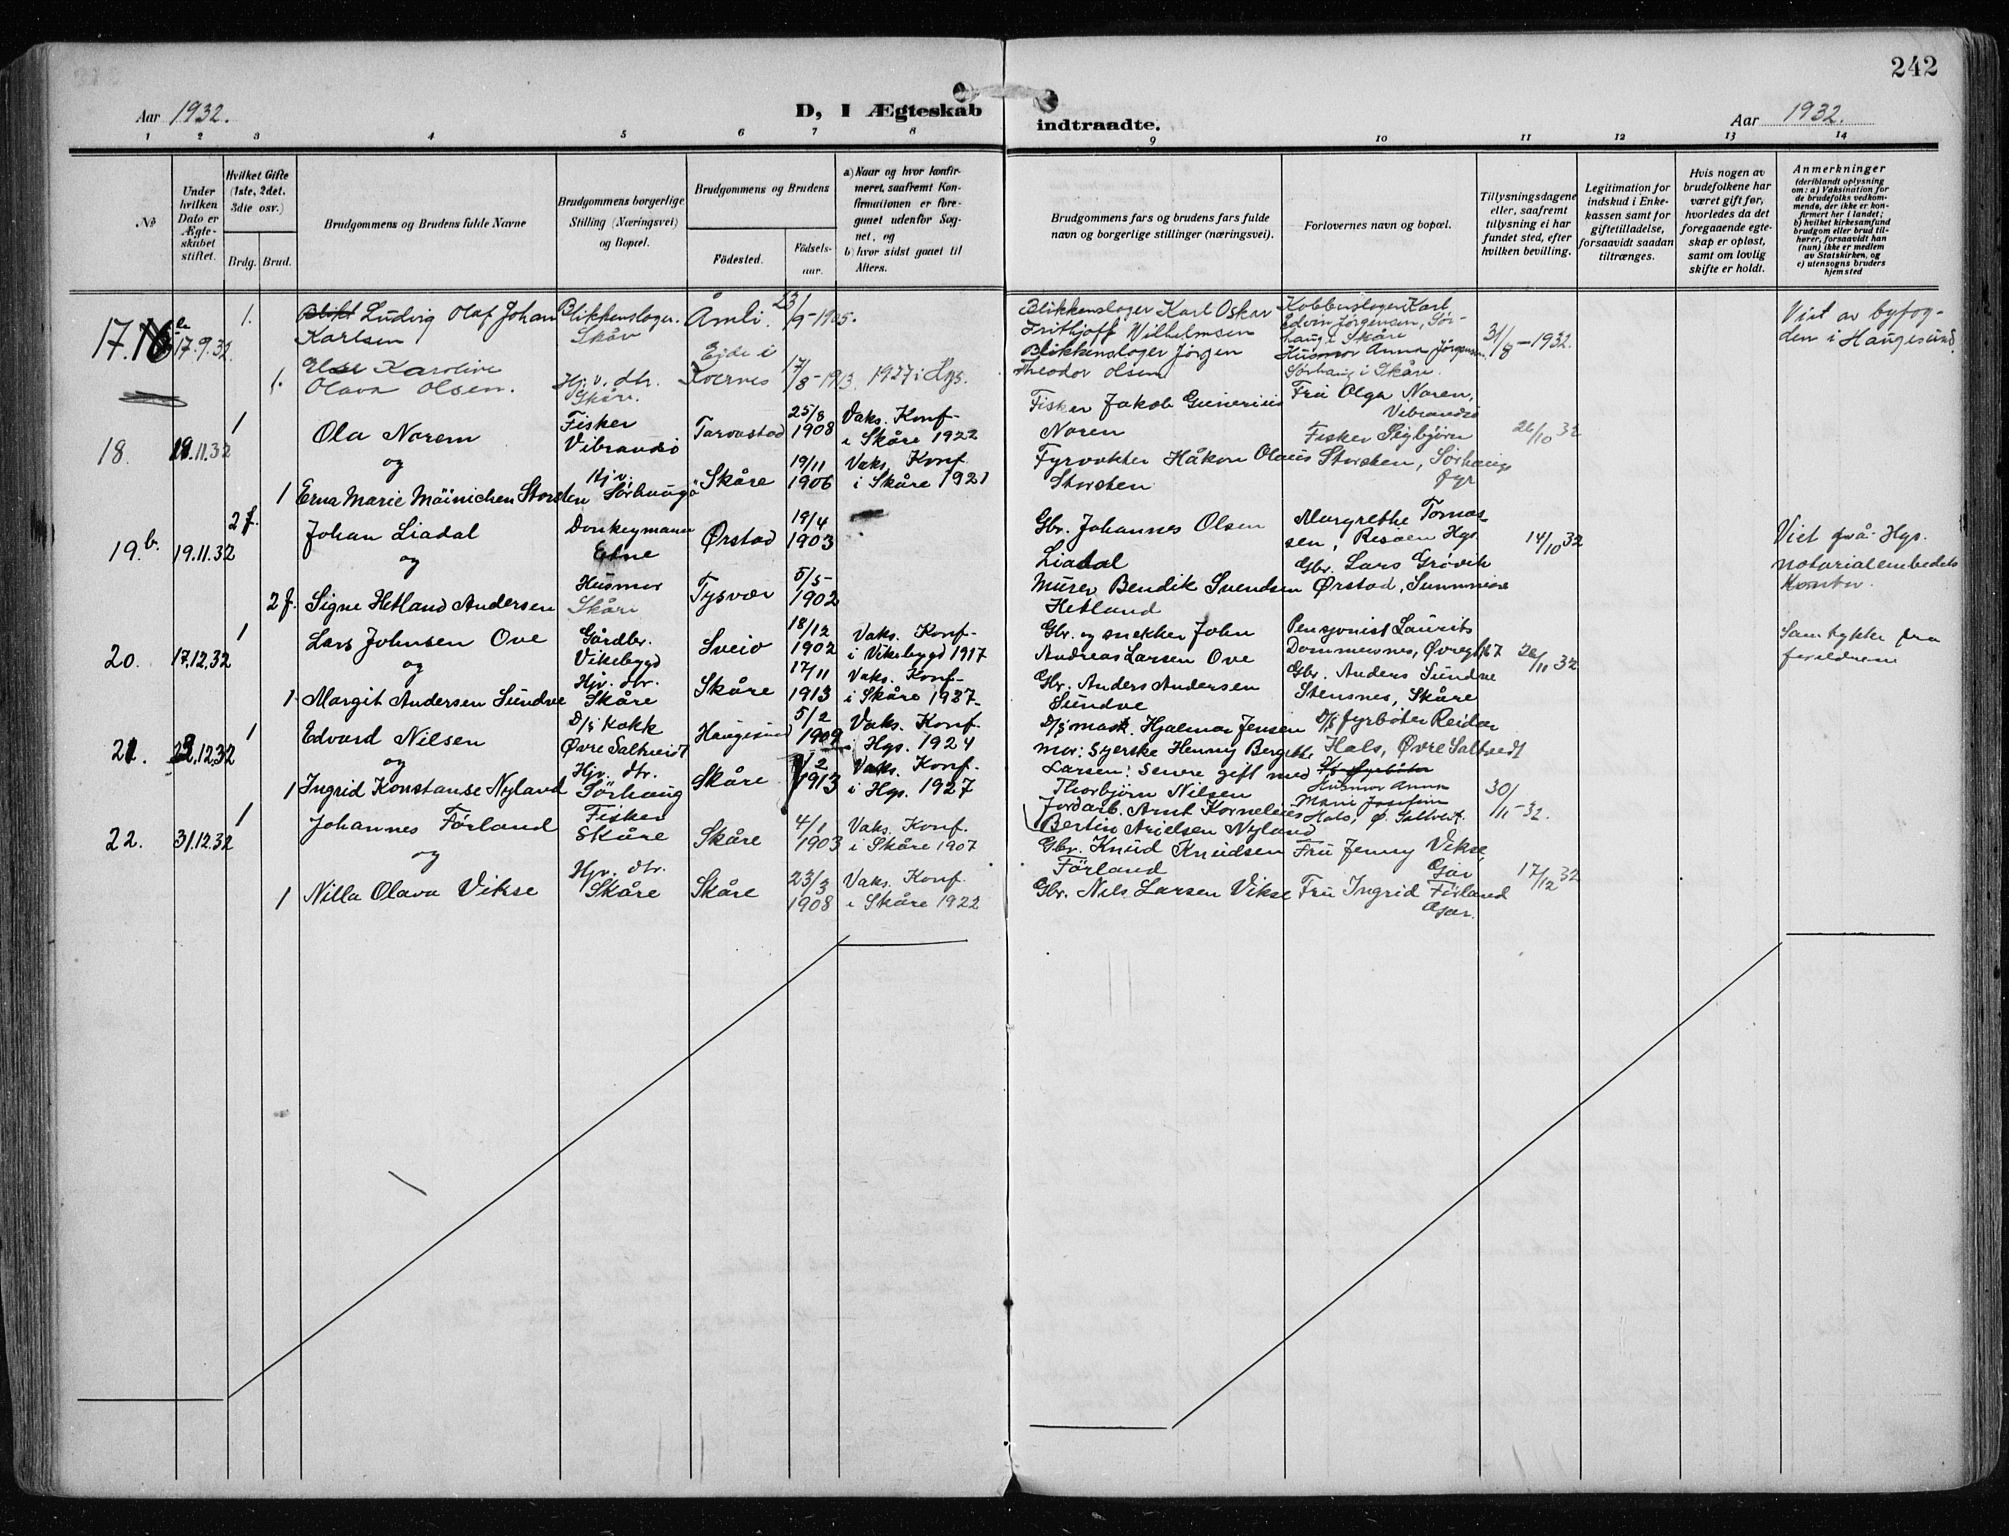 242
Aar 1932.
D, I Ægteskab
indtraadte.
Aar 1932.
1 2 3 4 5 6 7 8
9 10 11 12 13 14
No
Under hvilken Dato er Ægte-skabet stiftet.
Hvilket Gifte (1ste, 2det, 3die osv.)
Brdg. Brud.
Brudgommens og Brudens fulde Navne
Brudgommens borgerlige Stilling (Næringsvei) og Bopæl.
Brudgommens og Brudens
Fødested.
Fødsels-aar.
a) Naar og hvor konfir-meret, saafremt Kon-firmationen er fore-gaaet udenfor Sog-net, og
b) hvor sidst gaaet til Alters.
Brudgommens fars og brudens fars fulde navn og borgerlige stillinger (næringsvei).
Forlovernes navn og bopæl.
Tillysningsdagene eller, saafremt tillysning ei har fundet sted, efter hvilken bevilling.
Legitimation for indskud i Enke-kassen samt for giftetilladelse, forsaavidt saadan tiltrænges.
Hvis nogen av brudefolkene har været gift før, hvorledes da det foregaaende egte-skap er opløst, samt om lovlig skifte er holdt.
Anmerkninger
(deriblandt oplysning om: a) Vaksination for de brudefolks vedkom-mende, der ikke er kon-firmert her i landet; b) hvilket kirkesamfund brudgom eller brud til-hører, forsaavidt han (hun) ikke er medlem av Statskirken, og c) utensogns bruders hjemsted
17. 17.9.32 1. Ludvig Olaf Johan Karlsen
Blikkenslager. Skåre
Åmli. 23/9-1905.
Blikkenslager Karl Oskar Frithjoff Wilhelmsen
Kobberslager Karl Edvin Jørgensen, Sør-haug i Skåre
31/8-1932.
Viet av byfog-den i Haugesund.
1. Else Karoline Olava Olsen.
Hj.v. dtr. Skåre.
Eide i 17/8-1913. 1927 i Hgs.
Blikkenslager Jørgen Theodor Olsen
Husmor Anna Jørgensen Sørhaug i Skåre.
18. 19.11.32 1 Ola Norem
og
Fisker Vibrandsö
Tarvastad 25/8 1908
Vaks. Konf. i Skåre 1922
Fisker Jakob Gunerius Noren
Fru Olga Noren, Vibrandsö
26/10 32
1 Erna Marie Möinichen Storsten
Hjv. Sørhaugö
Skåre 19/11 1906
Vaks. Konf. i Skåre 1921
Fyrvokter Håkon Olaus Storsten
Fisker Sigbjörn Storsten, Sørhaugs fyr
19.b. 19.11.32 2 f. Johan Liadal
og
Donkeymann Etne
Ørstad 19/4 1903
Gbr. Johannes Olsen Liadal
Margrethe Tomas-sen, Risøen Hgs.
14/10 32
Viet på Hgs. notarialembedets kontor.
2 f. Signe Hetland Andersen
Husmor Skåre
Tysvær 5/5- 1902
Murer Bendik Svendsen Hetland
Gbr. Lars Grøvik Ørstad, Sunnmøre
20. 17.12.32 1 Lars Johnsen Ove
og
Gårdbr. Vikebygd
Sveio 18/12 1902
Vaks. Konf- i Vikebygd 1917
Gbr. og snekker John Andreas Larsen Ove
Pensjonist Laurits Dommersnes, Øvregt 67
26/11 32
Samtykke fra foreldrene
1 Margit Andersen Sundve
Hjv. dtr. Skåre
Skåre 17/11 1913
Vaks. Konf- i Skåre 1927.
Gbr. Anders Andersen Sundve
Gbr. Anders Sundve Stensnes, Skåre
21. 23.12.32 1 Edvard Nilsen
og
D/s Kokk Øvre Saltveidt
Haugesund 5/2 1909
Vaks. Konf. i Hgs. 1924
D/s mask. Hjalmar Jensen
mor: Syerske Henny Bergitte Larsen: Senere gift med Thorbjørn Nilsen
D/s fyrböter Reidar Hals, Øvre Saltveidt
30/11-32.
1 Ingrid Konstanse Nyland
Hjv. dtr. Sørhaug
Skåre 1/2 1913
Vaks. Konf. i Hgs. 1927
Jordarb. Arnt Kornelius Bertin Arielsen Nyland
Husmor Anna Marie Josefine Hals, Ø. Saltveit.
22. 31.12.32 1 Johannes Førland
og
Fisker Skåre
Skåre 4/1 1903
Vaks. Konf. i Skåre 1907
Gbr. Knud Knudsen Førland
Fru Jenny Vikse,
17/12 32
1 Nilla Olava Vikse
Hjv. dtr. Skåre
Skåre 23/3 1908
Vaks. Konf. i Skåre 1922
Gbr. Nils Larsen Vikse
Fru Ingrid Førland